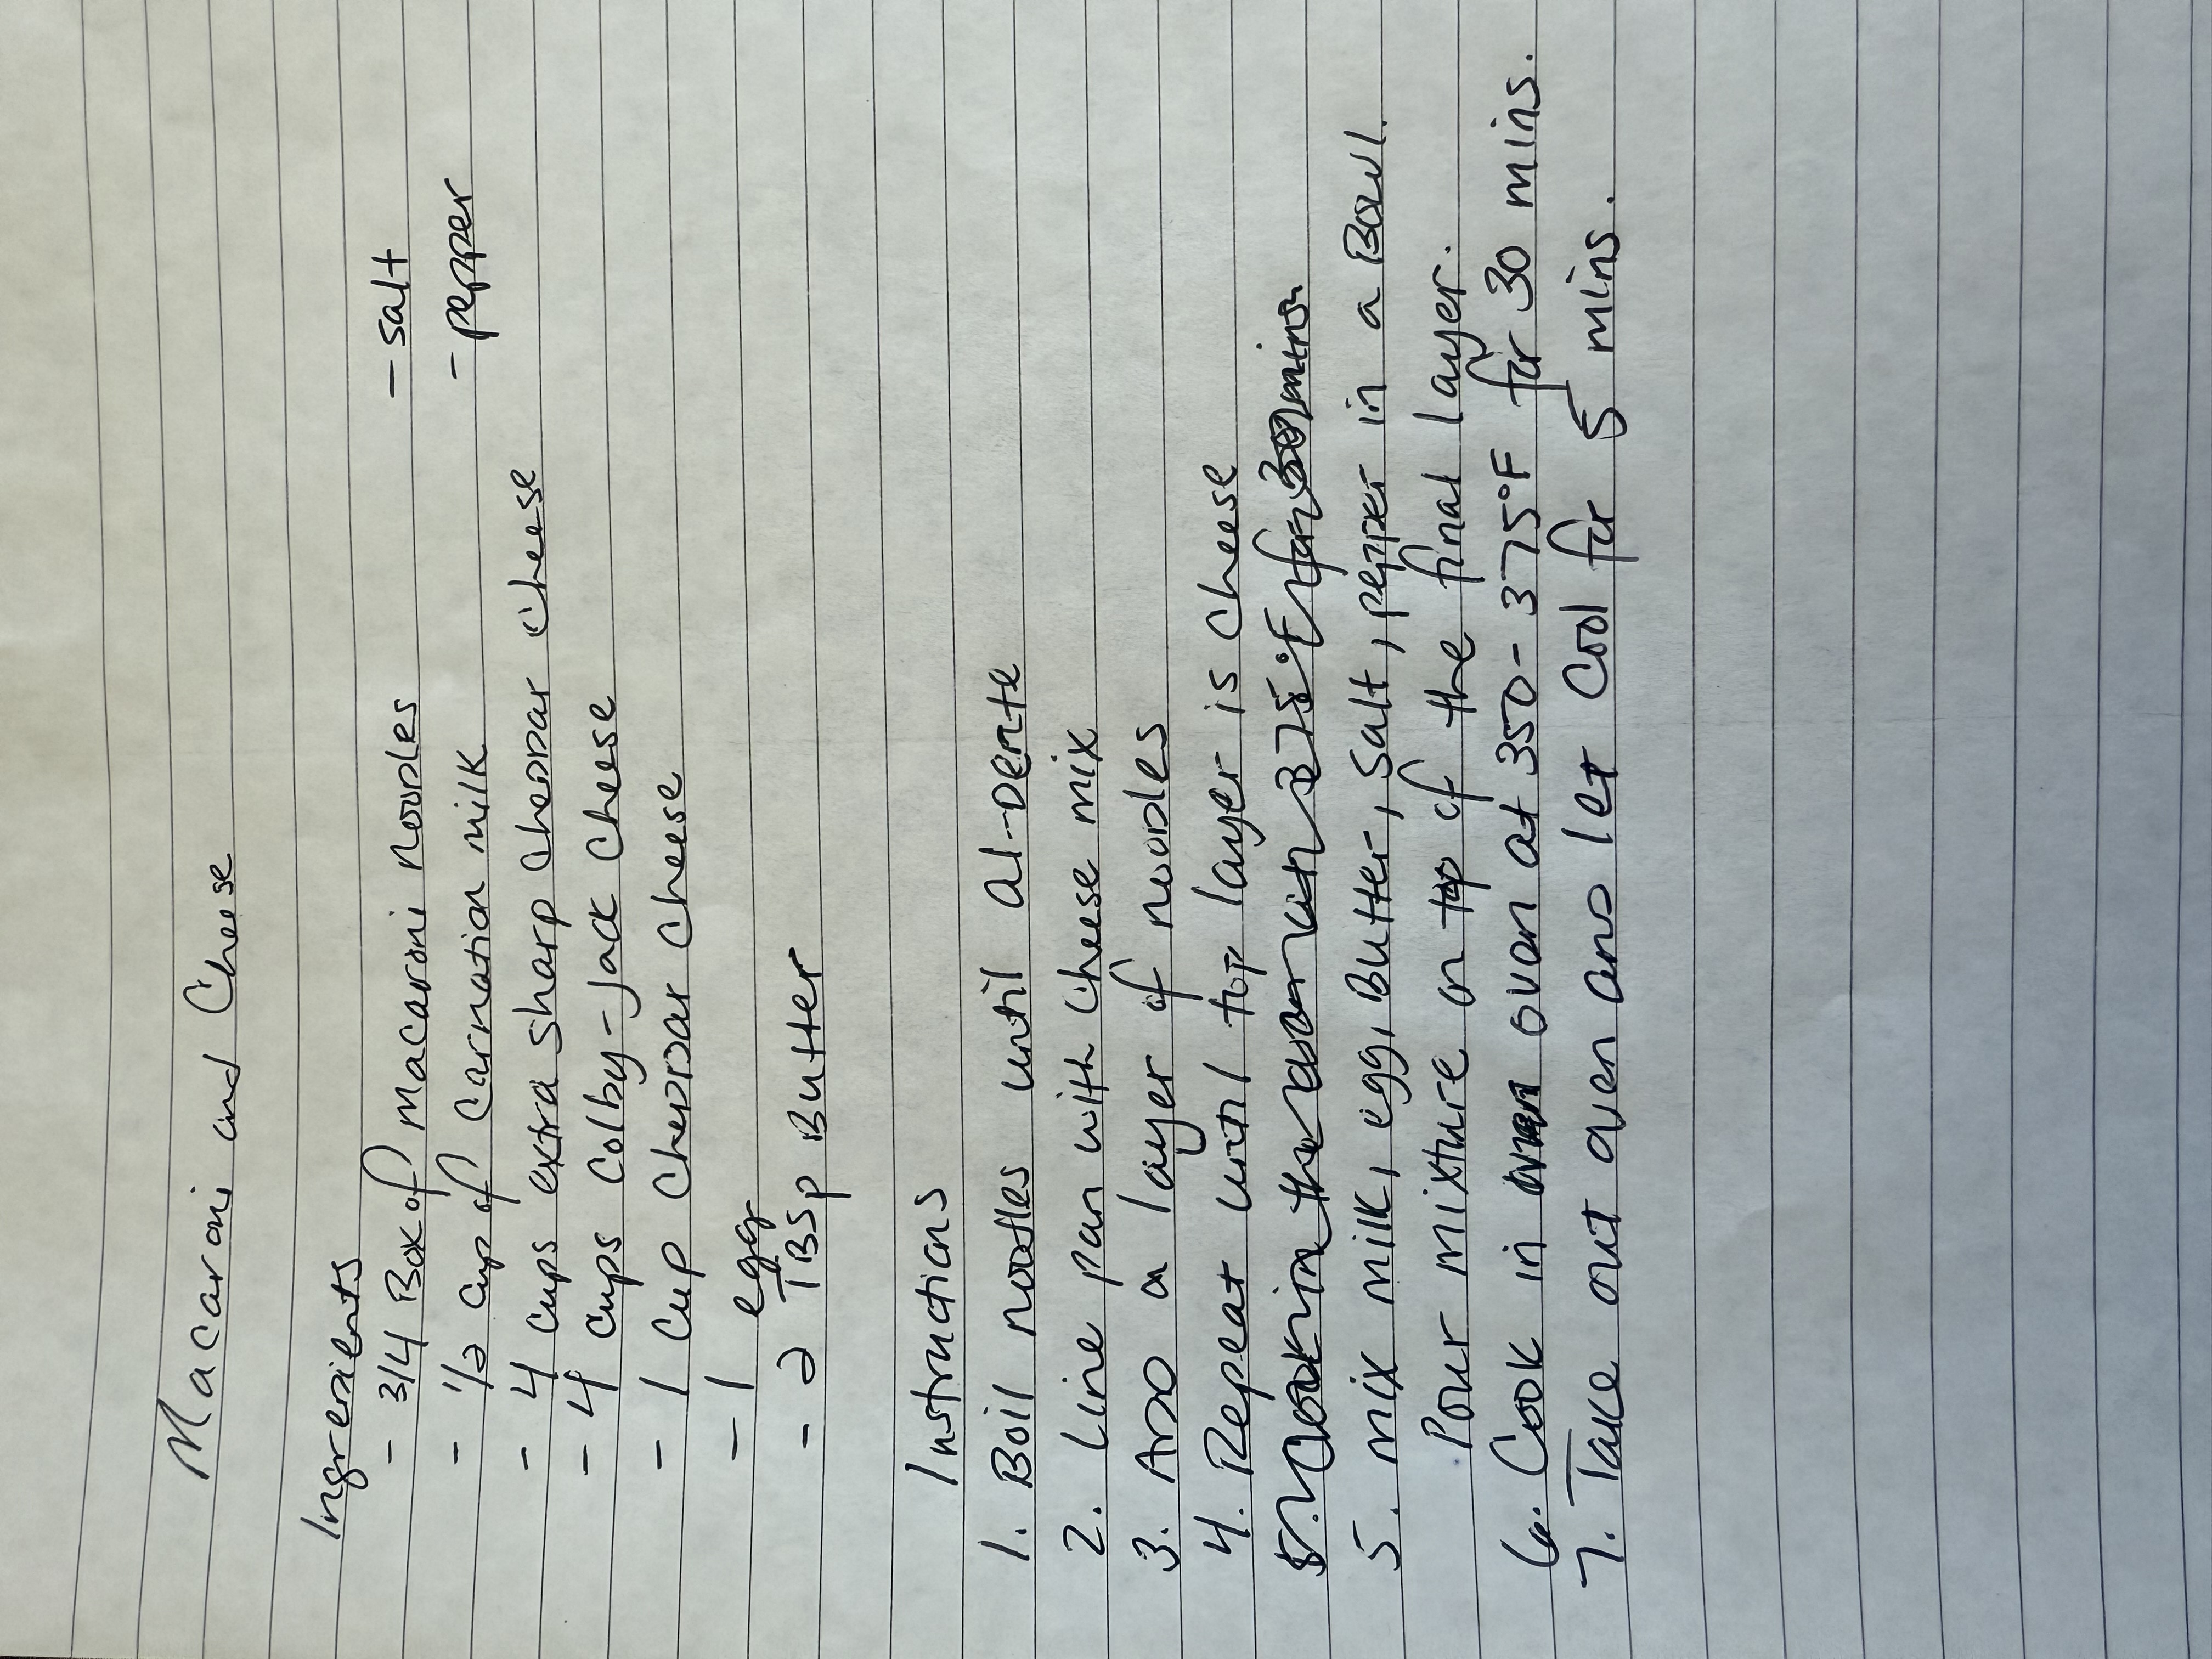 Macaroni and Cheese
Ingredients
- 3/4 Box of Macaroni Noodles
- salt
- 1/2 Cup of Carnation milk
- pepper
- 4 cups extra sharp Cheddar Cheese
- 4 cups Colby-Jack Cheese
- 1 Cup Cheddar Cheese
- 1 egg
- 2 TBSp Butter
Instructions
1. Boil noodles until al-Dente
2. Line pan with Cheese mix
3. ADD a layer of noodles
4. Repeat until top layer is Cheese
5. Cook in the oven at 375°F for 30 mins
5. mix milk, egg, Butter, Salt, pepper in a Bowl.
Pour mixture on top of the final layer.
6. Cook in oven at 350-375°F for 30 mins.
7. Take out oven and let Cool for 5 mins.